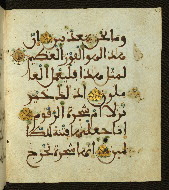 وما نحن بمعذبين إن
هذا لهو الفوز العظيم
لمثل هذا فليعمل العا
ملون أذلك خير
نزلا أم شجرة الزقوم
إنا جعلنها فتنة للظ
لمين إنها شجرة تخرج